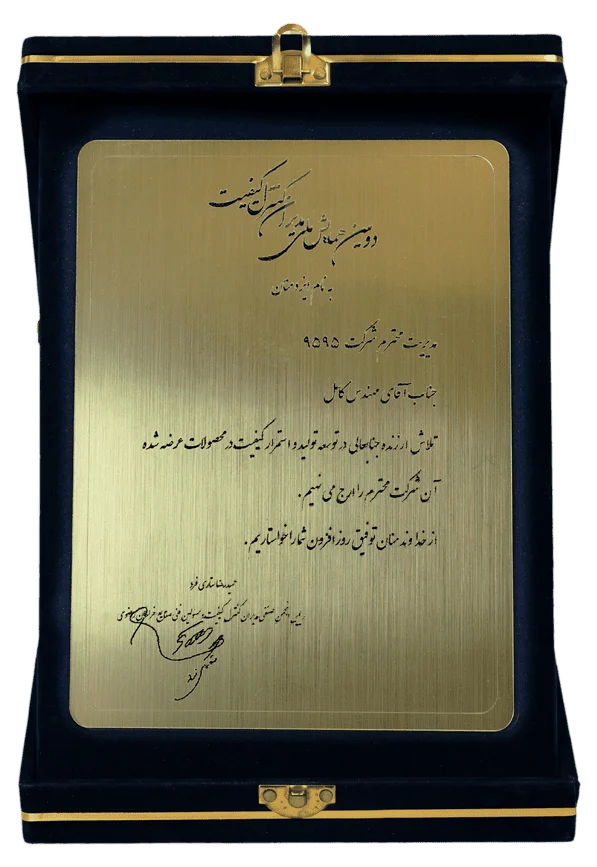 دومین همایش ملی مدیران کنترل کیفیت
به نام ایزد منان
مدیریت محترم شرکت ۹۵۹۵
جناب آقای مهندس کامل
تلاش ارزنده جنابعالی در توسعه تولید و استمرار کیفیت در محصولات عرضه شده
آن شرکت محترم را ارج می نهیم.
از خداوند منان توفیق روز افزون شما را خواستاریم.
حمیدرضا ستاری فرد
رییس انجمن صنفی مدیران کنترل کیفیت و مسولین فنی صنایع خراسان رضوی